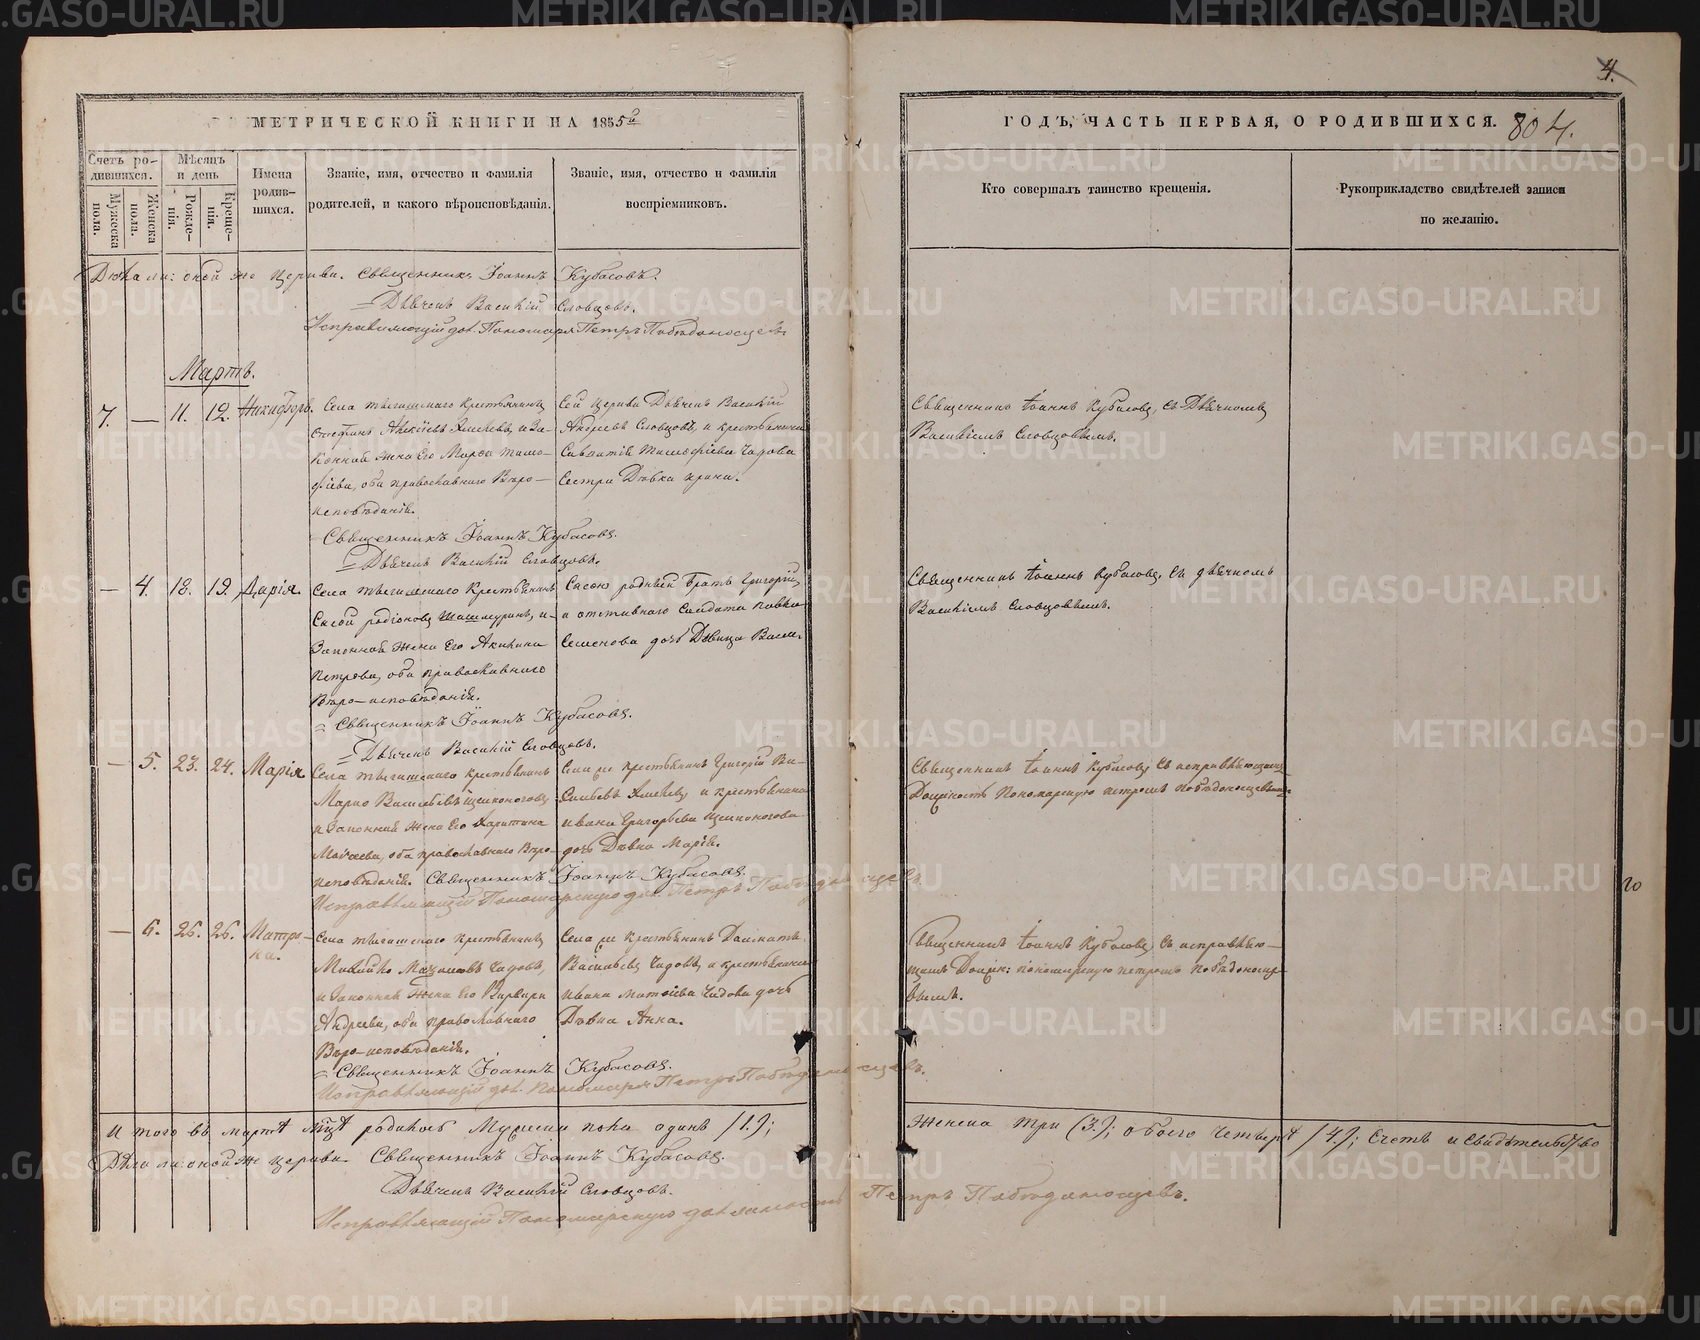 4.
МЕТРИЧЕСКОЙ КНИГИ НА 1855й
ГОДЪ, ЧАСТЬ ПЕРВАЯ, О РОДИВШИХСЯ. 804.
Счетъ родившихся.
Мужеска пола.
Женска пола.
Мѣсяцъ и день
Рожденія.
Крещенія.
Имена родившихся.
Званіе, имя, отчество и фамилія
родителей, и какого вѣроисповѣданія.
Званіе, имя, отчество и фамилія
воспріемниковъ.
Кто совершалъ таинство крещенія.
Рукоприкладство свидѣтелей записи
по желанію.
оной же Церкви. Священникъ Іоаннъ Кубасовъ.
Дьячекъ Василій Словцовъ.
Исправляющій дол. Пономаря Петръ Побѣдоносцевъ
Мартъ.
7. — 11. 12. Никифоръ.
Села крестьянинъ
Стефанъ и За-
конная жена Его Марѳа Тимо-
ѳіева, оба православнаго Вѣро-
исповѣданія.
Сей церкви Дьячекъ Василій
Андреевъ Словцовъ, и крестьянина
Савватія Тимоѳіева Чадова
Сестра Дѣвка
Священникъ Іоаннъ Кубасовъ, съ Дьячкомъ
Василіемъ Словцовымъ.
Священникъ Іоаннъ Кубасовъ.
Дьячекъ Василій Словцовъ.
— 4. 18. 19. Дарія.
Села крестьянинъ
родіоновъ и
Законная жена Его Акилина
Петрова, оба православнаго
Вѣро-исповѣданія.
родный братъ Григорій,
и отставнаго Солдата Павла
Семенова дочь Дѣвица
Священникъ Іоаннъ Кубасовъ, съ дьячкомъ
Василіемъ Словцовымъ.
Священникъ Іоаннъ Кубасовъ.
Дьячекъ Василій Словцовъ.
— 5. 23. 24. Марія.
Села крестьянинъ
Марко Васильевъ
и Законная жена Его Харитина
оба православнаго Вѣро-
исповѣданія. Священникъ Іоаннъ Кубасовъ.
крестьянинъ Григорій
и крестьянина
Ивана Григорьева
дочь Дѣвка Марія.
Священникъ Іоаннъ Кубасовъ, съ исправляющимъ
Должность Пономарскую Петромъ Побѣдоносцевымъ
Исправляющій Пономарскую дол. Петръ Побѣдоносцевъ.
— 6. 25. 26. Матро-
на.
Села крестьянинъ
Чадовъ,
и Законная жена Его Варвара
Андреева, оба православнаго
Вѣро-исповѣданія.
крестьянинъ
Васильевъ Чадовъ, и крестьянина
Ивана Матѳіева Чадова дочь
Дѣвка Анна.
Священникъ Іоаннъ Кубасовъ, съ исправляю-
щимъ Должн: пономарскую Петромъ Побѣдоносце-
вымъ.
Священникъ Іоаннъ Кубасовъ.
Исправляющій дол. Пономаря Петръ Побѣдоносцевъ.
Итого въ мартѣ мцѣ родилось Мужеска пола одинъ /1./;
Женска три (3.); обоего четыре /4./; Счетъ и свидѣтельство
оной же церкви Священникъ Іоаннъ Кубасовъ.
Дьячекъ Василій Словцовъ.
Исправляющій Пономарскую должность Петръ Побѣдоносцевъ.
METRIKI.GASO-URAL.RU